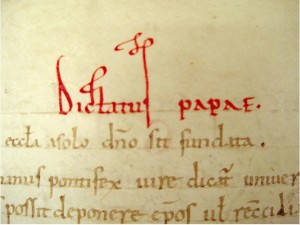 Dictatus papae.
eccła a solo dño sit fundata.
manus pontifex iure dicat᷑ univer
possit deponere ep̄os uł recōcili